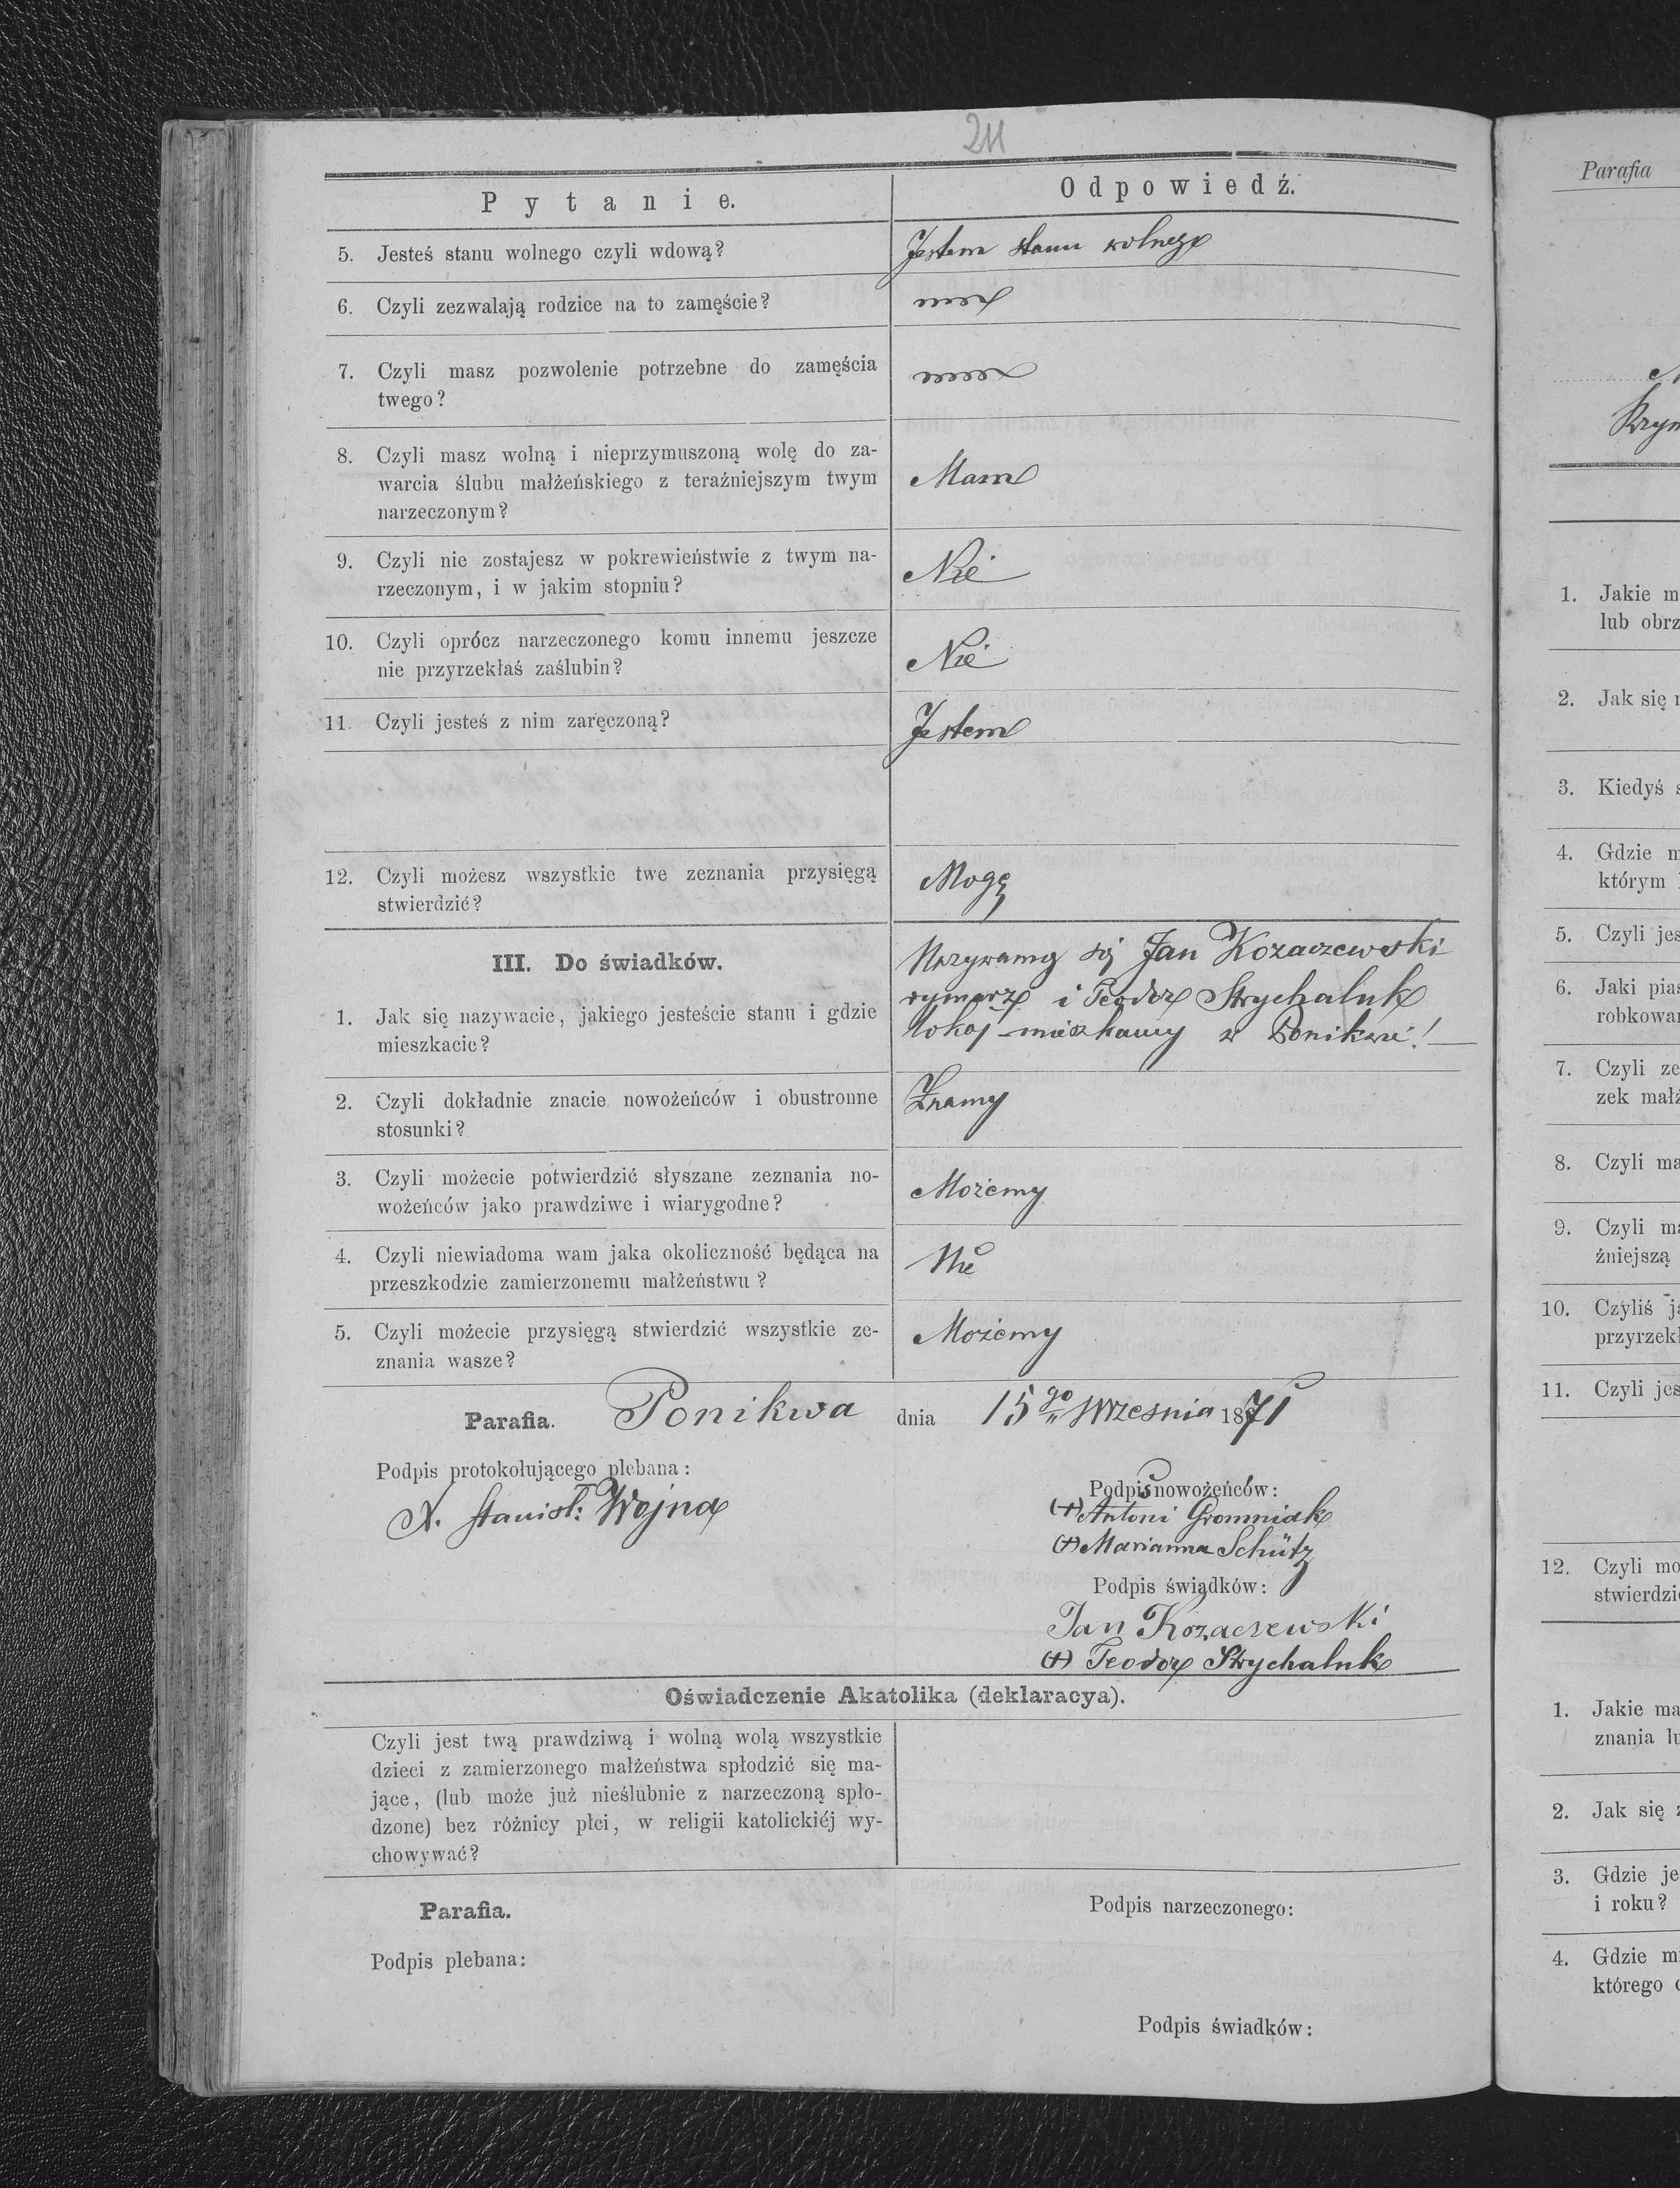 211
Pytanie.
Odpowiedź.
5. Jesteś stanu wolnego czyli wdową?
Jestem stanu wolnego
6. Czyli zezwalają rodzice na to zamęście?
7. Czyli masz pozwolenie potrzebne do zamęścia
twego?
8. Czyli masz wolną i nieprzymuszoną wolę do za-
warcia ślubu małżeńskiego z teraźniejszym twym
narzeczonym?
Mam
9. Czyli nie zostajesz w pokrewieństwie z twym na-
rzeczonym, i w jakim stopniu?
Nie
10. Czyli oprócz narzeczonego komu innemu jeszcze
nie przyrzekłaś zaślubin?
Nie
11. Czyli jesteś z nim zaręczoną?
Jestem
12. Czyli możesz wszystkie twe zeznania przysięgą
stwierdzić?
Mogę
III. Do świadków.
1. Jak się nazywacie, jakiego jesteście stanu i gdzie
mieszkacie?
Nazywamy się Jan Kozaczewski
rymarz i Teodor Strychaluk
lokaj – mieszkamy w Ponikwie!
2. Czyli dokładnie znacie nowożeńców i obustronne
stosunki?
Znamy
3. Czyli możecie potwierdzić słyszane zeznania no-
wożeńców jako prawdziwe i wiarygodne?
Możemy
4. Czyli niewiadoma wam jaka okoliczność będąca na
przeszkodzie zamierzonemu małżeństwu?
Nie
5. Czyli możecie przysięgą stwierdzić wszystkie ze-
znania wasze?
Możemy
Parafia. Ponikwa dnia 15go Wrzesnia 1871
Podpis protokołującego plebana:
X. Stanisł: Wojna
Podpis nowożeńców:
(+) Antoni Gromniak
(+) Marianna Schütz
Podpis świadków:
Jan Kozaczewski
(+) Teodor Strychaluk
Oświadczenie Akatolika (deklaracya).
Czyli jest twą prawdziwą i wolną wolą wszystkie
dzieci z zamierzonego małżeństwa spłodzić się ma-
jące, (lub może już nieślubnie z narzeczoną spło-
dzone) bez różnicy płci, w religii katolickiéj wy-
chowywać?
Parafia.
Podpis narzeczonego:
Podpis plebana:
Podpis świadków:
Parafia
1. Jakie m
lub obrz
2. Jak się
3. Kiedyś s
4. Gdzie m
którym
5. Czyli jes
6. Jaki pias
robkowan
7. Czyli ze
zek małż
8. Czyli ma
9. Czyli ma
źniejszą
10. Czyliś ja
przyrzek
11. Czyli jes
12. Czyli mo
stwierdzi
1. Jakie ma
znania lu
2. Jak się
3. Gdzie je
i roku?
4. Gdzie mi
którego